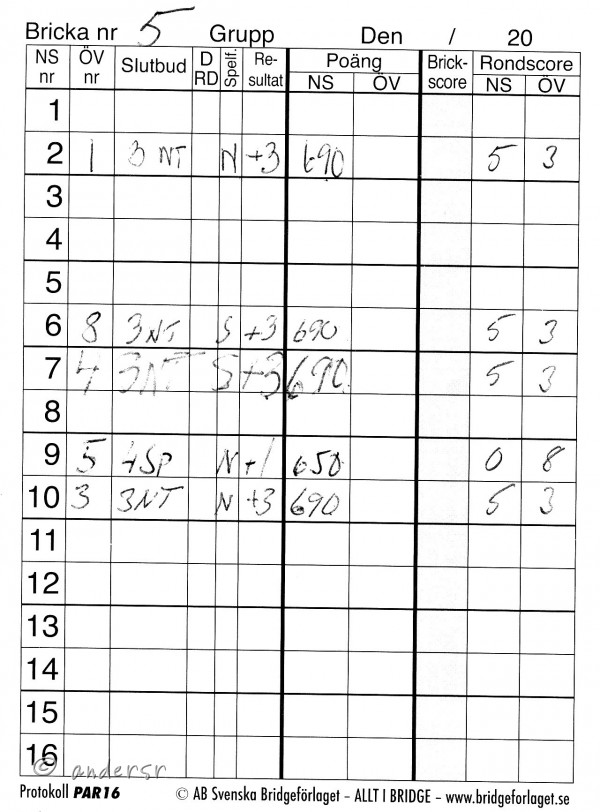 Bricka nr 5 Grupp Den / 20
NS nr ÖV nr Slutbud D RD Spelf. Re-sultat Poäng NS ÖV Brick-score Rondscore NS ÖV
1
2 1 3 NT N +3 690 5 3
3
4
5
6 8 3NT S +3 690 5 3
7 4 3NT S +3 690 5 3
8
9 5 4SP N +1 650 0 8
10 3 3NT N +3 690 5 3
11
12
13
14
15
16
© andersr
Protokoll PAR16 © AB Svenska Bridgeförlaget – ALLT I BRIDGE – www.bridgeforlaget.se